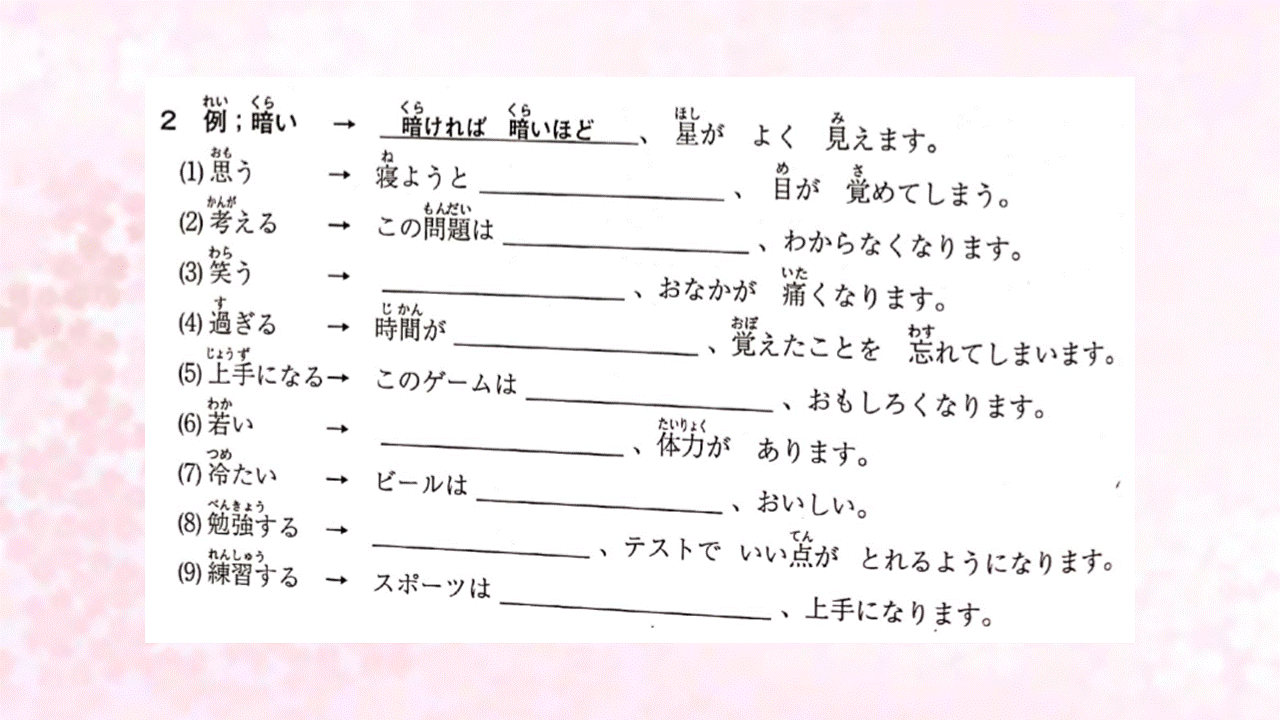 2 例；暗い → 暗ければ 暗いほど、星が よく 見えます。
(1) 思う → 寝ようと＿＿＿＿＿＿＿＿、目が 覚めてしまう。
(2) 考える → この問題は＿＿＿＿＿＿＿＿、わからなくなります。
(3) 笑う → ＿＿＿＿＿＿＿＿、おなかが 痛くなります。
(4) 過ぎる → 時間が＿＿＿＿＿＿＿＿、覚えたことを 忘れてしまいます。
(5) 上手になる→ このゲームは＿＿＿＿＿＿＿＿、おもしろくなります。
(6) 若い → ＿＿＿＿＿＿＿＿、体力が あります。
(7) 冷たい → ビールは＿＿＿＿＿＿＿＿、おいしい。
(8) 勉強する → ＿＿＿＿＿＿＿＿、テストで いい点が とれるようになります。
(9) 練習する → スポーツは＿＿＿＿＿＿＿＿、上手になります。